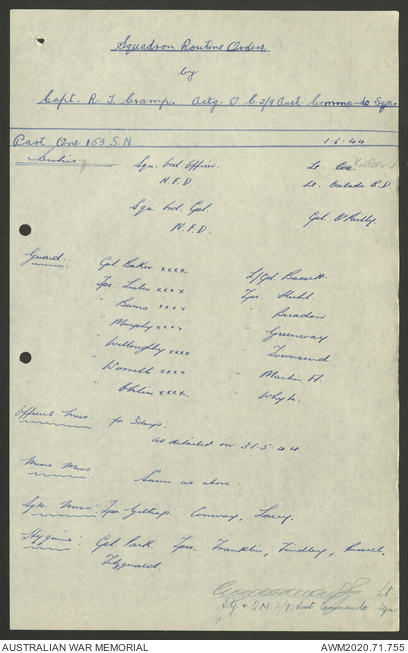 Squadron Routine Orders.
by
Capt. R. T. Cramp. Actg. O.C. 2/9 Aust Commando Sqn.
Part One. 153 S.N. 1-6-44
Duties. Sqn. Ord Officer. Lt. Cox
N.F.D Lt. B.D.
Sqn. Ord. Cpl Cpl. O'Reilly.
N.F.D.
Guard. Cpl. Baker xxxx L/Cpl. Bassett.
Tprs. Lister xxxx Tprs.
" Burns xxxx "
" Murphy xxxx " Greenway
" Willoughby xxxx " Townsend
" Worrall xxxx " Martin. H
" xxxx. " Whyte.
Officers Mess. for 3 days.
as detailed on 31-5-44
Mens Mess. Same as above.
Sgts. Mess. Tprs. Conway, Lacey.
Hygiene: Cpl. Park. Tprs. Franklin, Findlay, Russell,
Fitzgerald.
Lt
Adj & QM 2/9 Aust Commando Sqn
AUSTRALIAN WAR MEMORIAL AWM2020.71.755